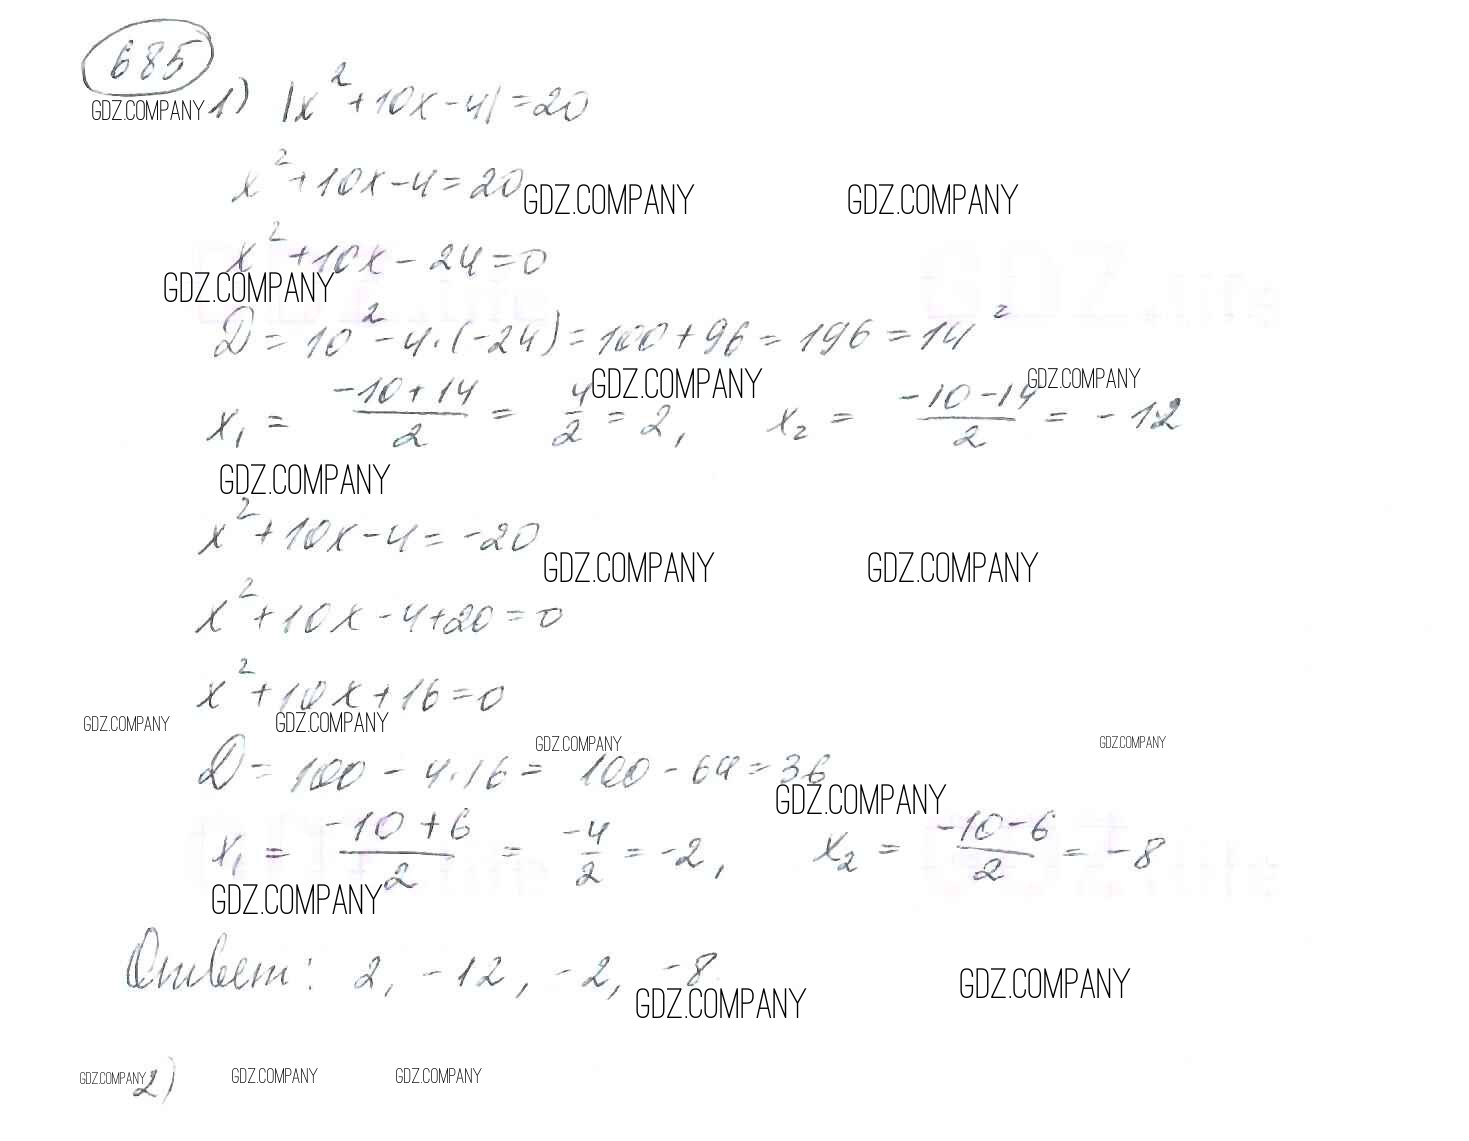 685
GDZ.COMPANY 1) |x²+10x-4|=20
x²+10x-4=20 GDZ.COMPANY GDZ.COMPANY
x²+10x-24=0
GDZ.COMPANY
D=10²-4·(-24)=100+96=196=14²
GDZ.COMPANY GDZ.COMPANY
x₁ = (-10+14)/2 = 4/2 = 2, x₂ = (-10-14)/2 = -12
GDZ.COMPANY
x²+10x-4=-20
GDZ.COMPANY GDZ.COMPANY
x²+10x-4+20=0
x²+10x+16=0
GDZ.COMPANY GDZ.COMPANY GDZ.COMPANY GDZ.COMPANY
D=100-4·16=100-64=36
GDZ.COMPANY
x₁ = (-10+6)/2 = -4/2 = -2, x₂ = (-10-6)/2 = -8
GDZ.COMPANY
Ответ: 2, -12, -2, -8
GDZ.COMPANY GDZ.COMPANY
GDZ.COMPANY 2) GDZ.COMPANY GDZ.COMPANY